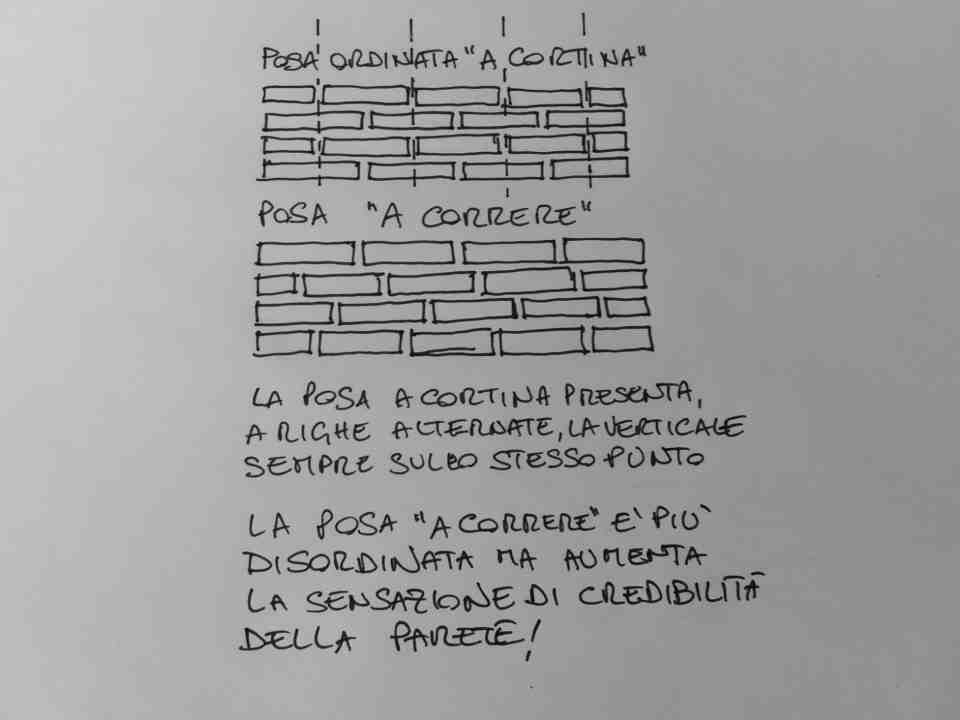 POSA ORDINATA "A CORTINA"
POSA "A CORRERE"
LA POSA A CORTINA PRESENTA,
A RIGHE ALTERNATE, LA VERTICALE
SEMPRE SULLO STESSO PUNTO
LA POSA "A CORRERE" E' PIU'
DISORDINATA MA AUMENTA
LA SENSAZIONE DI CREDIBILITÀ
DELLA PARETE!